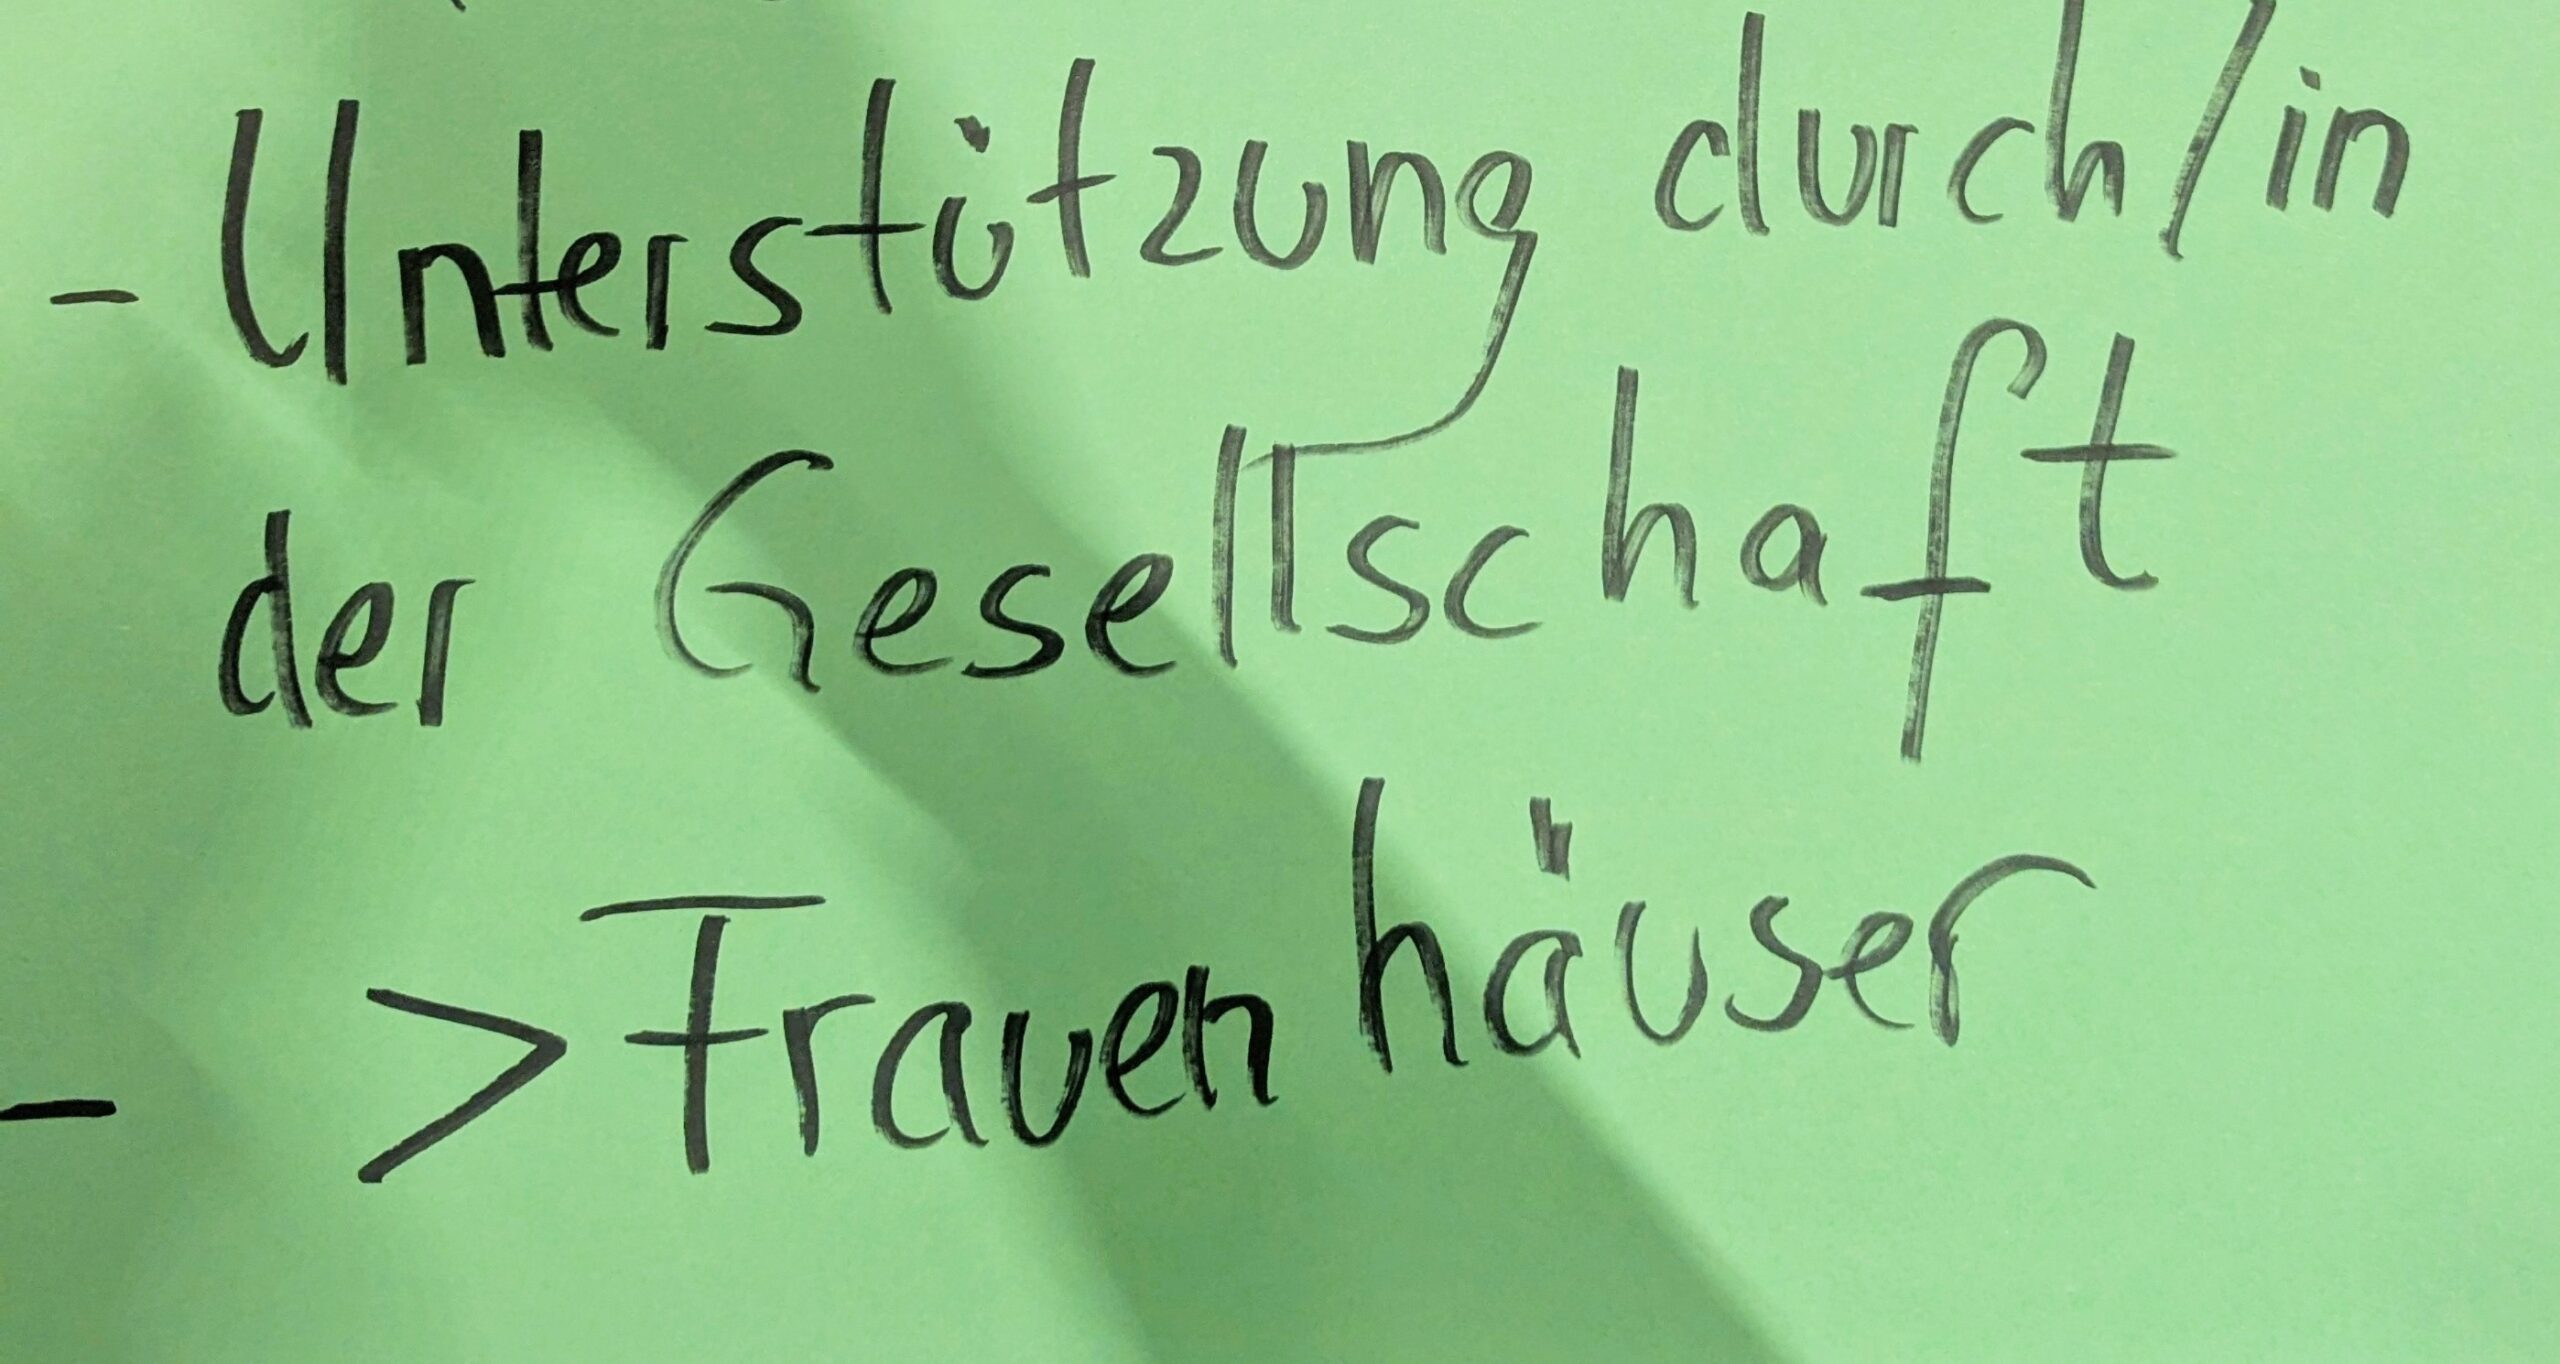 - Unterstützung durch/in
der Gesellschaft
- > Frauenhäuser